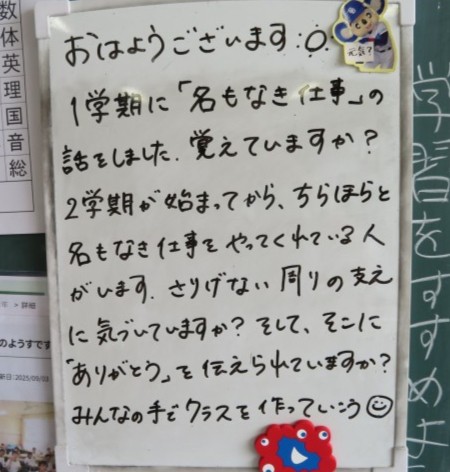 おはようございます
元気?
1学期に「名もなき仕事」の
話をしました. 覚えていますか?
2学期が始まってから、ちらほらと
名もなき仕事をやってくれている人
がいます. さりげない周りの支え
に気づいていますか? そして、そこに
「ありがとう」を伝えられていますか?
みんなの手でクラスを作っていこう
数
体
英
理
国
音
総
> 詳細
のようすです
新日:2025/09/03
学習をすすめよ